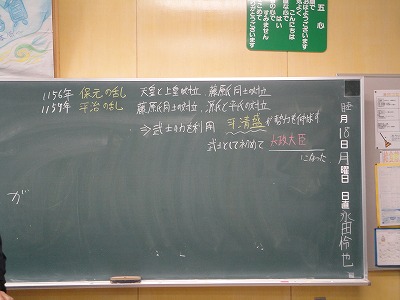 五心
1156年 保元の乱 天皇と上皇が対立、藤原氏同士が対立
1159年 平治の乱 藤原氏同士が対立、源氏と平氏が対立
⇒武士の力を利用 平清盛が勢力を伸ばす
武士として初めて 太政大臣
になった
が
月18日月曜日 日直 永田倫也